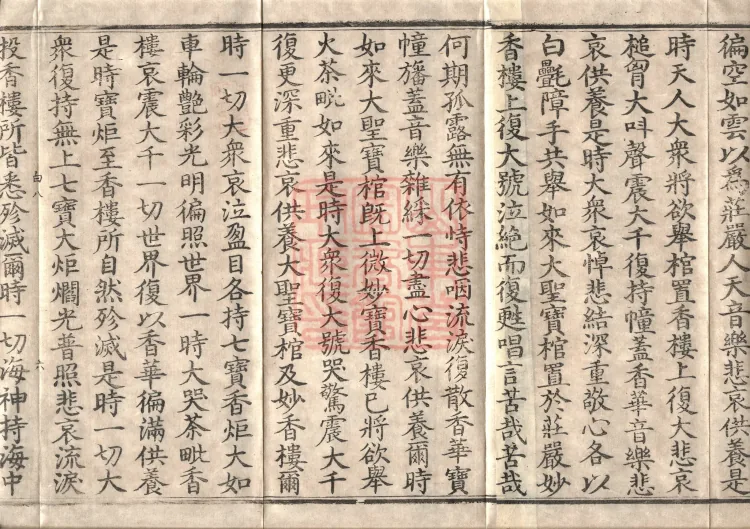 徧空如雲以爲莊嚴人天音樂悲哀供養是
時天人大衆將欲舉棺置香樓上復大悲哀
槌胷大呌聲震大千復持幢蓋香華音樂悲
哀供養是時大衆哀悼悲結深重敬心各以
白㲲障手共舉如來大聖寶棺置於莊嚴妙
香樓上復大號泣絶而復甦唱言苦哉苦哉
何期孤露無有依恃悲咽流淚復散香華寶
幢旛蓋音樂雜綵一切盡心悲哀供養爾時
如來大聖寶棺旣上微妙寶香樓已將欲舉
火茶毗如來是時大衆復大號哭驚震大千
復更深重悲哀供養大聖寶棺及妙香樓爾
時一切大衆哀泣盈目各持七寶香炬大如
車輪艷彩光明徧照世界一時大哭茶毗香
樓哀震大千一切世界復以香華徧滿供養
是時寶炬至香樓所自然殄滅是時一切大
衆復持無上七寶大炬爛光普照悲哀流淚
白八 六
投香樓所皆悉殄滅爾時一切海神持海中